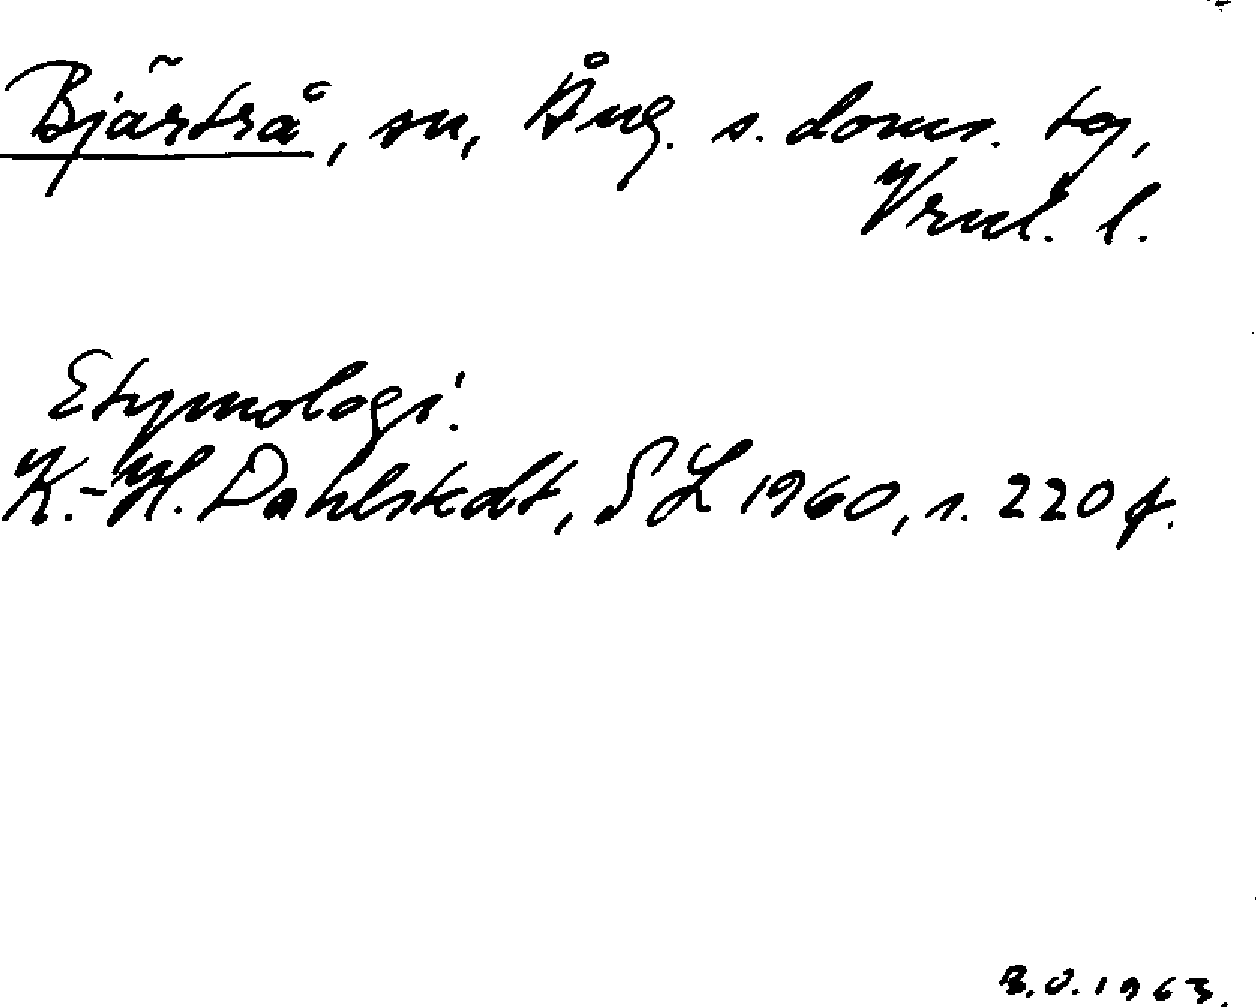 Bjärtrå, sn, Ång. s. doms. tg,
Vrnl. l.
Etymologi.
K.-H. Dahlstedt, SL 1960, s. 220 f.
B.O. 1963.